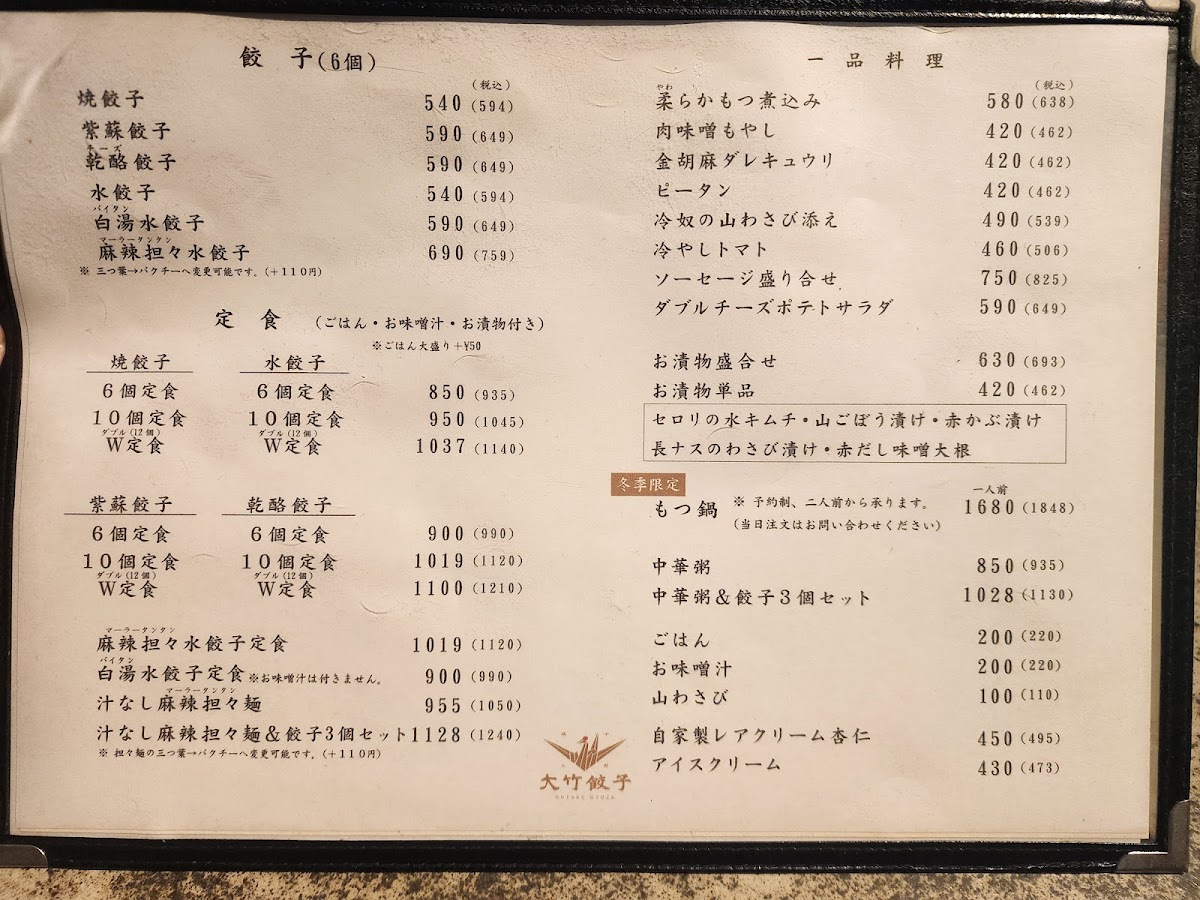 餃子(6個)
(税込)
焼餃子 540 (594)
紫蘇餃子 590 (649)
チーズ
乾酪餃子 590 (649)
水餃子 540 (594)
パイタン
白湯水餃子 590 (649)
マーラータンタン
麻辣担々水餃子 690 (759)
※ 三つ葉→パクチーへ変更可能です。(+110円)
定食 (ごはん・お味噌汁・お漬物付き)
※ごはん大盛り+¥50
焼餃子 水餃子
6個定食 6個定食 850 (935)
10個定食 10個定食 950 (1045)
ダブル(12個) ダブル(12個)
W定食 W定食 1037 (1140)
紫蘇餃子 乾酪餃子
6個定食 6個定食 900 (990)
10個定食 10個定食 1019 (1120)
ダブル(12個) ダブル(12個)
W定食 W定食 1100 (1210)
マーラータンタン
麻辣担々水餃子定食 1019 (1120)
パイタン
白湯水餃子定食 ※お味噌汁は付きません。 900 (990)
マーラータンタン
汁なし麻辣担々麺 955 (1050)
汁なし麻辣担々麺&餃子3個セット 1128 (1240)
※ 担々麺の三つ葉→パクチーへ変更可能です。(+110円)
一品料理
(税込)
やわ
柔らかもつ煮込み 580 (638)
肉味噌もやし 420 (462)
金胡麻ダレキュウリ 420 (462)
ピータン 420 (462)
冷奴の山わさび添え 490 (539)
冷やしトマト 460 (506)
ソーセージ盛り合せ 750 (825)
ダブルチーズポテトサラダ 590 (649)
お漬物盛合せ 630 (693)
お漬物単品 420 (462)
セロリの水キムチ・山ごぼう漬け・赤かぶ漬け
長ナスのわさび漬け・赤だし味噌大根
冬季限定
一人前
もつ鍋 ※ 予約制、二人前から承ります。 1680 (1848)
(当日注文はお問い合わせください)
中華粥 850 (935)
中華粥&餃子3個セット 1028 (1130)
ごはん 200 (220)
お味噌汁 200 (220)
山わさび 100 (110)
自家製レアクリーム杏仁 450 (495)
アイスクリーム 430 (473)
大竹餃子
OHTAKE GYOZA